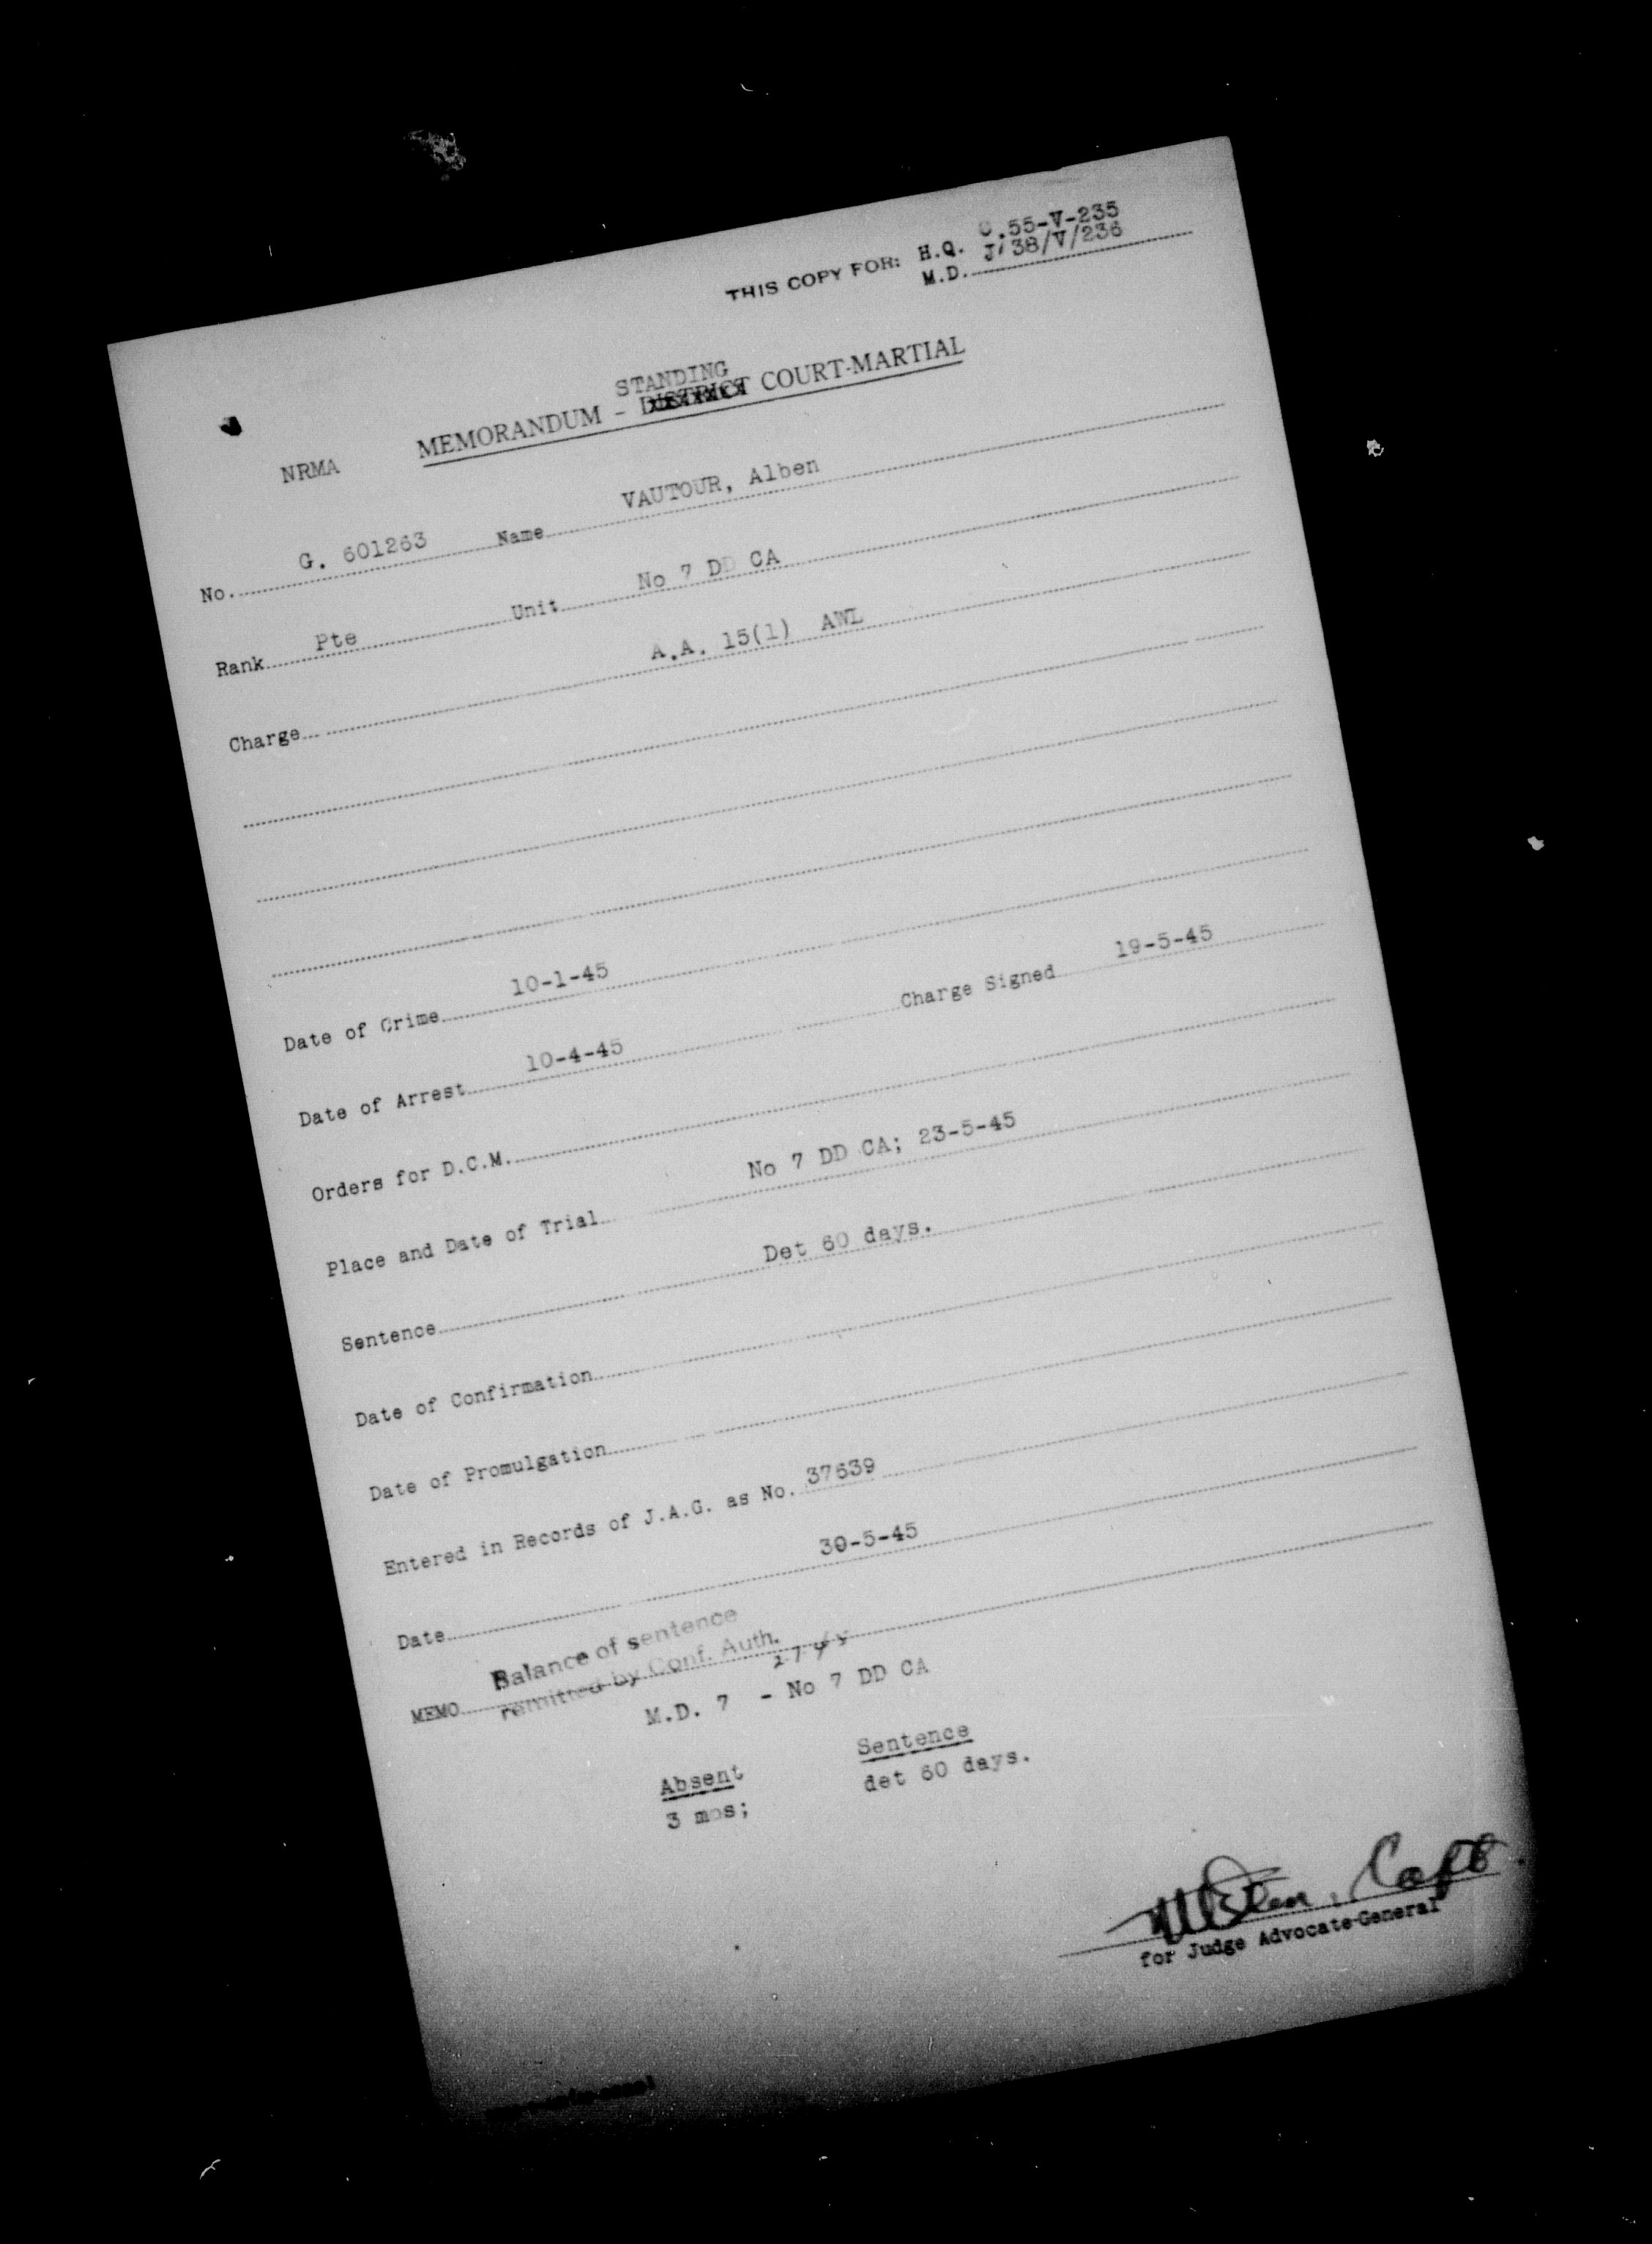 THIS COPY FOR: H.Q. C.55-V-235
M.D. J/38/V/236
STANDING
MEMORANDUM - DISTRICT COURT-MARTIAL
NRMA
No. G. 601263 Name VAUTOUR, Alben
Rank Pte Unit No 7 DD CA
Charge A.A. 15(1) AWL
Date of Crime 10-1-45
Date of Arrest 10-4-45 Charge Signed 19-5-45
Orders for D.C.M.
Place and Date of Trial No 7 DD CA; 23-5-45
Sentence Det 60 days.
Date of Confirmation
Date of Promulgation
Entered in Records of J.A.G. as No. 37639
Date 30-5-45
Balance of sentence
MEMO remitted by Conf. Auth.
M.D. 7 - No 7 DD CA
Absent Sentence
3 mos; det 60 days.
Capt.
for Judge Advocate-General